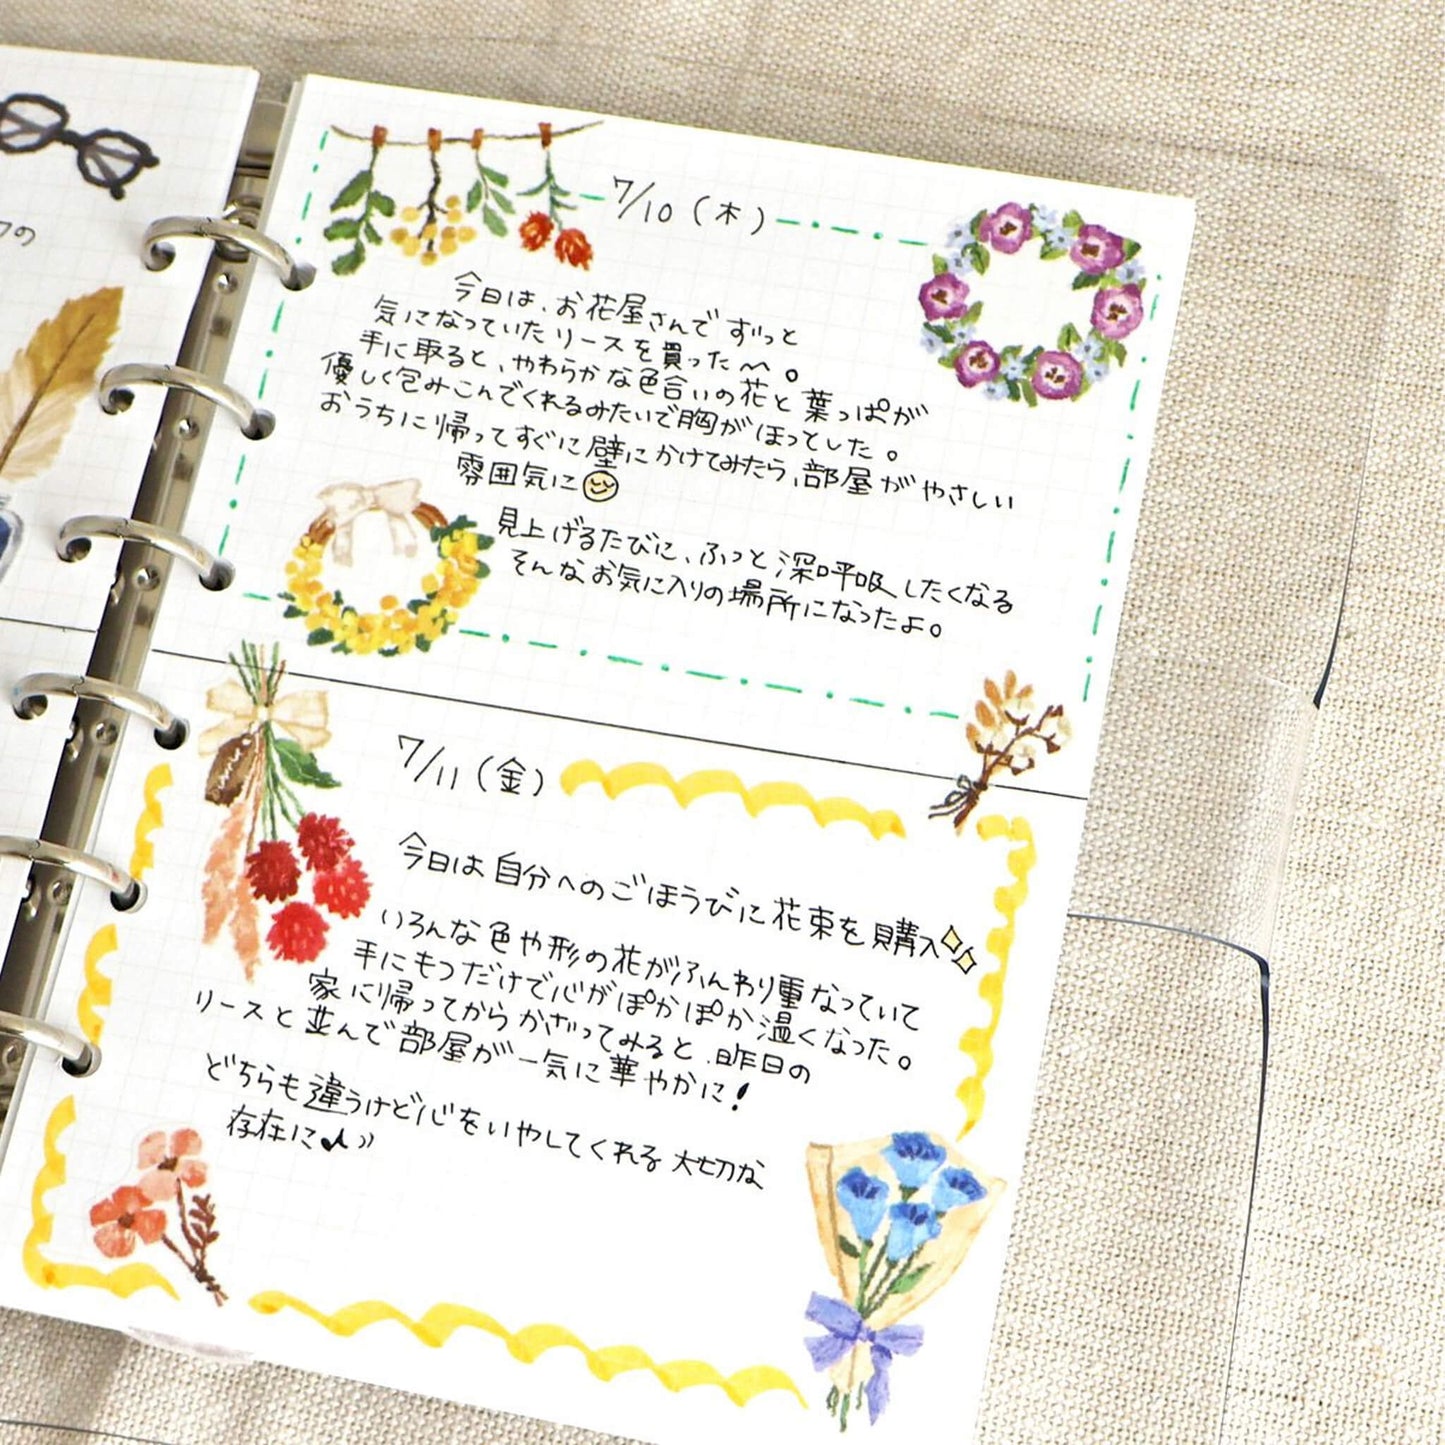 クの
7/10(木)
今日は、お花屋さんでずっと
気になっていたリースを買った〜。
手に取ると、やわらかな色合いの花と葉っぱが
優しく包みこんでくれるみたいで胸がほっとした。
おうちに帰ってすぐに壁にかけてみたら、部屋がやさしい
雰囲気に
見上げるたびに、ふっと深呼吸したくなる
そんなお気に入りの場所になったよ。
7/11(金)
今日は自分へのごほうびに花束を購入
いろんな色や形の花がふんわり重なっていて
手にもつだけで心がぽかぽか温くなった。
家に帰ってからかざってみると、昨日の
リースと並んで部屋が一気に華やかに!
どちらも違うけど心をいやしてくれる大切な
存在に♪))